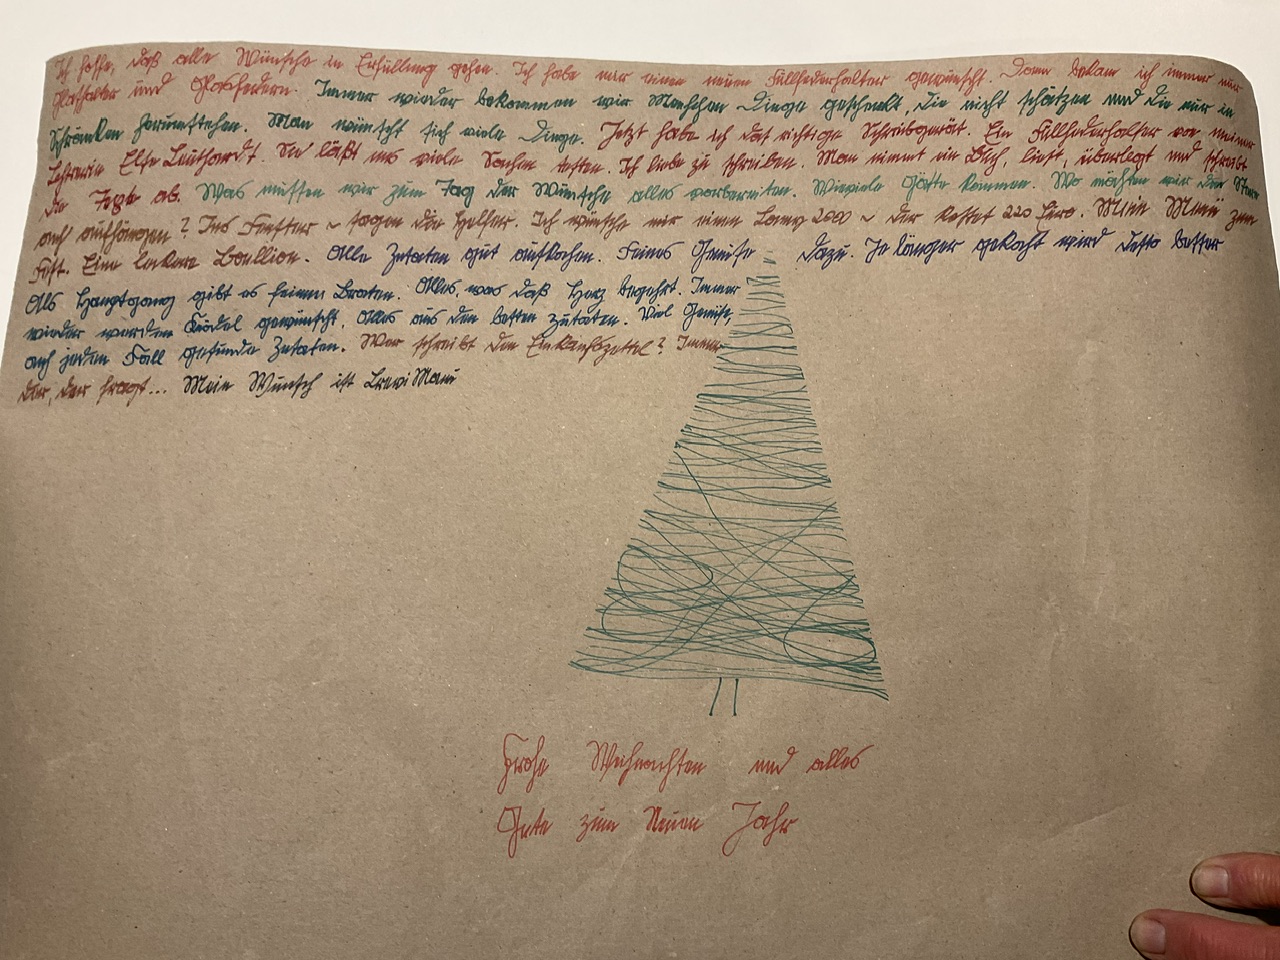 Ich hoffe, daß alle Wünsche in Erfüllung gehen. Ich habe mir einen neuen Füllfederhalter gewünscht. Dann bekam ich immer nur
Glashalter und Glasfedern. Immer wieder bekommen wir Menschen Dinge geschenkt, die nicht schätzen und die nur in
Schränken herumstehen. Man wünscht sich viele Dinge. Jetzt habe ich das richtige Schreibgerät. Ein Füllfederhalter von meiner
Lehrerin Else Leuthardt. Sie läßt uns viele Sachen testen. Ich liebe zu schreiben. Man nimmt ein Buch, liest, überlegt und schreibt
die Texte ab. Was müssen wir zum Tag der Wünsche alles vorbereiten. Wieviele Gäste kommen. Wo möchten wir den Stern
auch aufhängen? Ins Fenster ~ sagen die Helfer. Ich wünsche mir einen Lamy 2000 ~ der kostet 220 Euro. Mein Menü zum
Fest. Eine leckere Boullion. Alle Zutaten gut aufkochen. Feines Gemüse dazu. Je länger gekocht wird desto besser
Als Hauptgang gibt es feinen Braten. Alles, was daß Herz begehrt. Immer
wieder werden Knödel gewünscht. Alles aus den besten Zutaten. Viel Gemüse,
auf jeden Fall gesunde Zutaten. Wer schreibt den Einkaufszettel? Immer
der, der fragt... Mein Wunsch ist
Frohe Weihnachten und alles
Gute zum Neuen Jahr